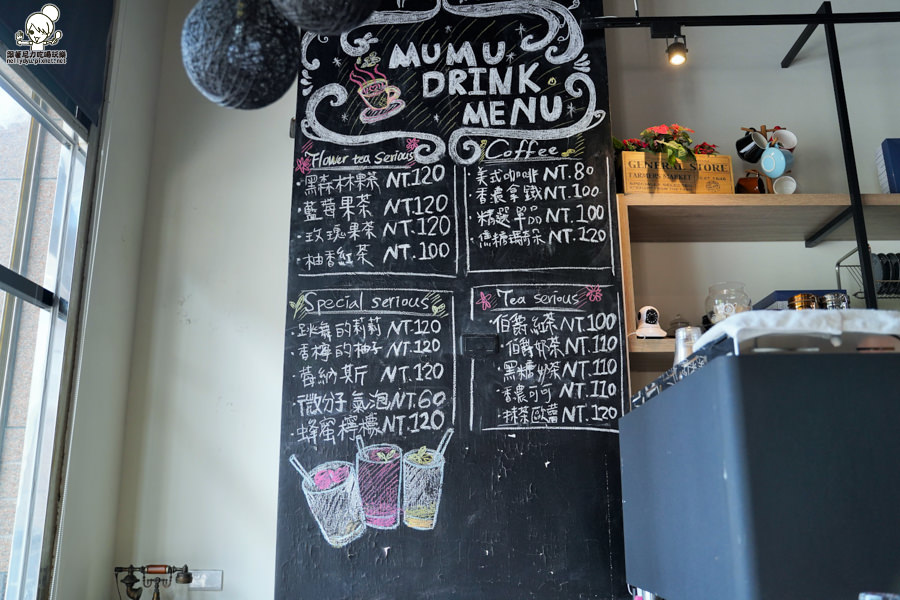 跟著尼力吃喝玩樂
nellydyu.pixnet.net
MUMU
DRINK
MENU
Flower tea Serious
·黑森林果茶 NT.120
·藍莓果茶 NT.120
·玫瑰果茶 NT.120
·柚香紅茶 NT.100
Coffee
·美式咖啡 NT.80
·香濃拿鐵 NT.100
·精選單品 NT.100
·焦糖瑪奇朵 NT.120
Special serious
·跳舞的莉莉 NT.120
·香檸的柚子 NT.120
·蕾納斯 NT.120
·微分子氣泡 NT.60
·蜂蜜檸檬 NT.120
Tea serious
·伯爵紅茶 NT.100
·伯爵奶茶 NT.110
·黑糖奶茶 NT.110
·香濃可可 NT.110
·抹茶歐蕾 NT.120
GENERAL STORE
FARMERS MARKET